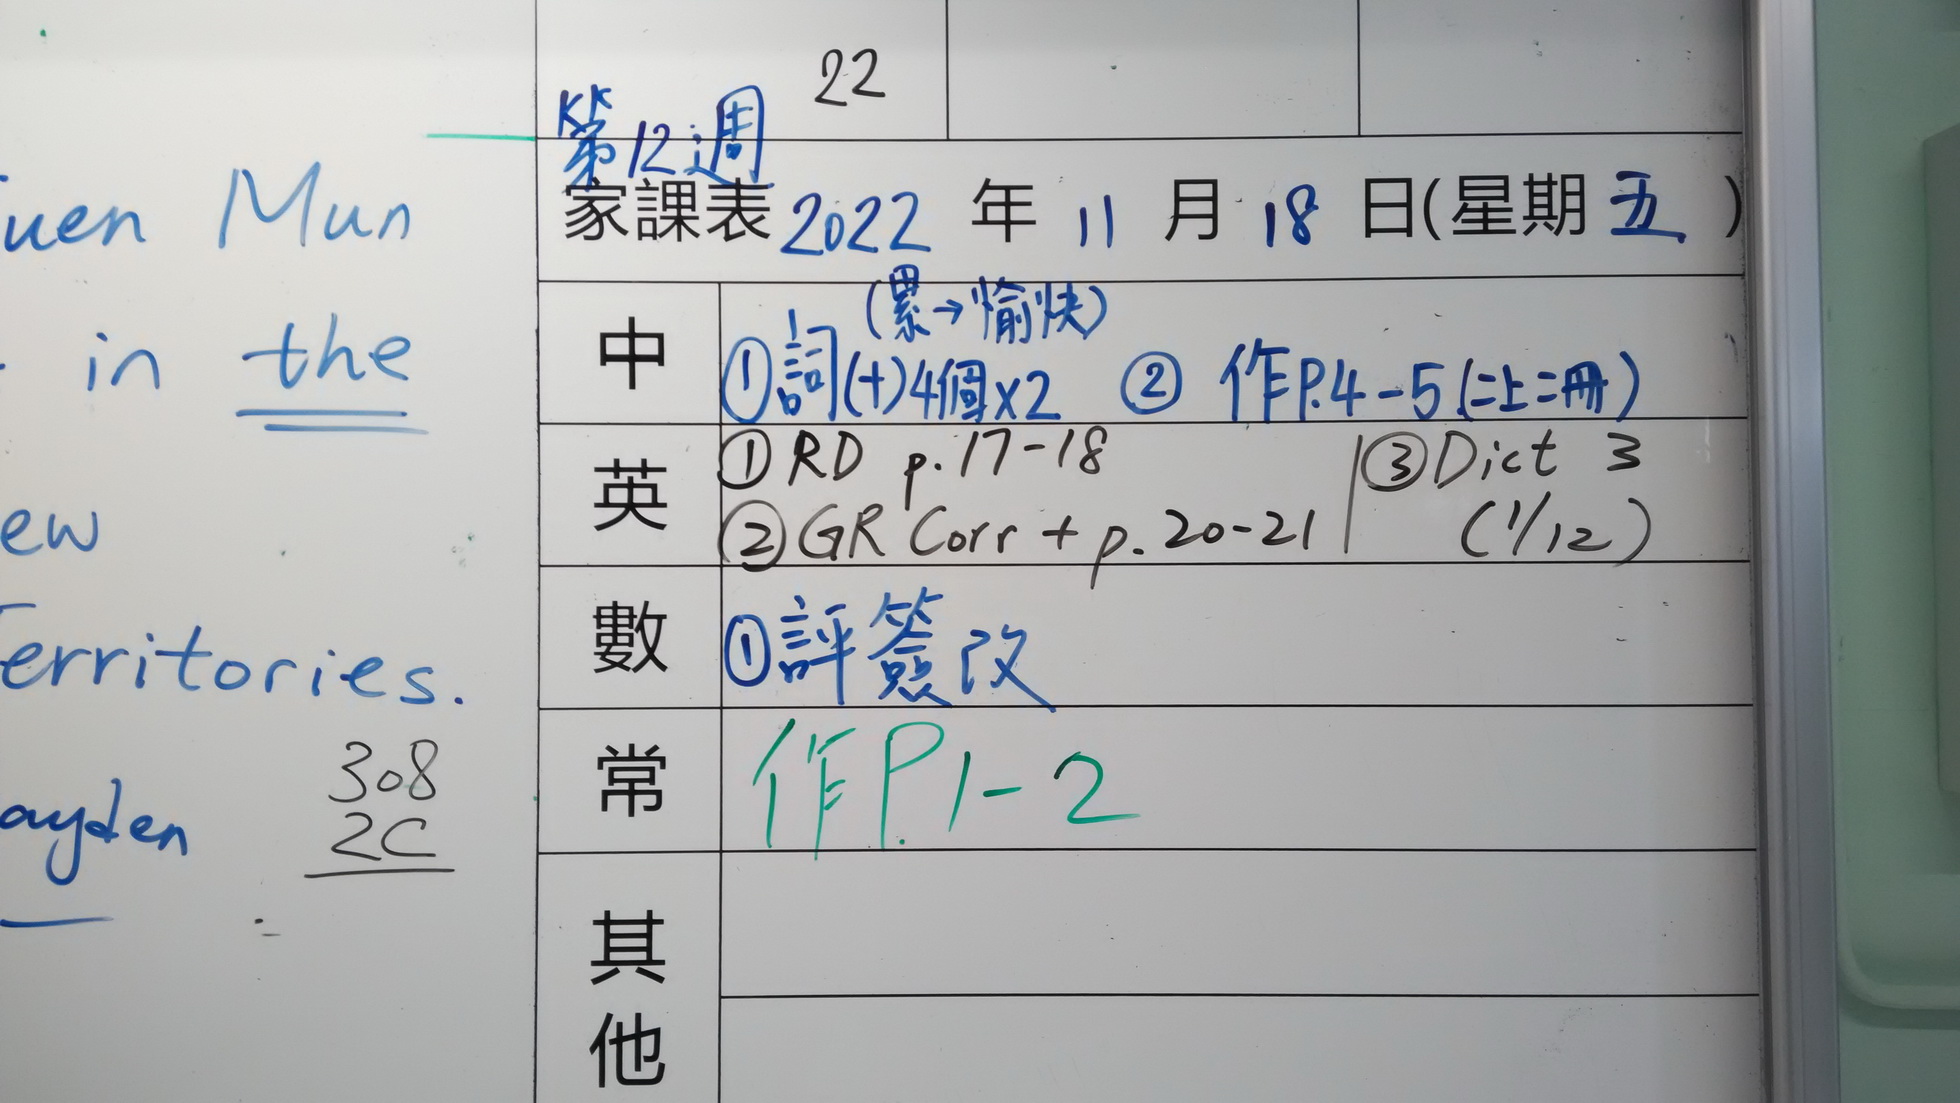 uen Mun
in the
ew
erritories.
ayden
308
2C
22
第12週
家課表 2022 年 11 月 18 日(星期 五 )
中
(累→愉快)
①詞(十)4個x2 ② 作P.4-5(二上二冊)
英
①RD p.17-18
②GR Corr + p.20-21
③Dict 3
(1/12)
數
①評簽改
常
作P.1-2
其
他